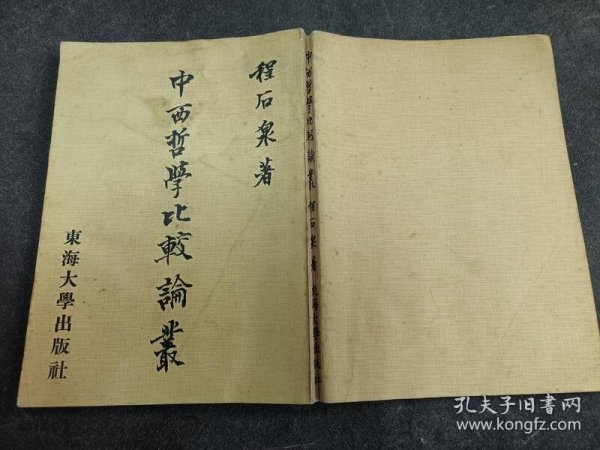 程石泉著
中西哲學比較論叢
東海大學出版社
中西哲學比較論叢 程石泉著 東海大學出版社
孔夫子旧書网
www.kongfz.com